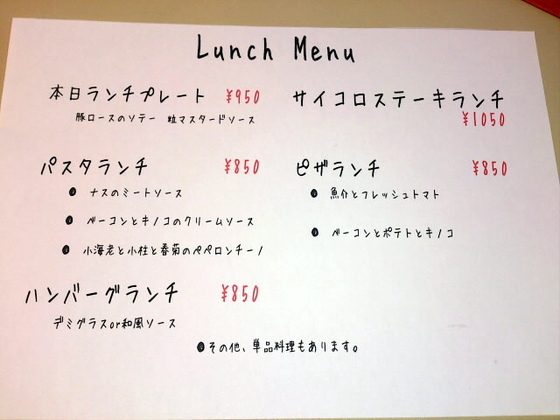 Lunch Menu
本日ランチプレート ¥950
豚ロースのソテー 粒マスタードソース
サイコロステーキランチ
¥1050
パスタランチ ¥850
● ナスのミートソース
● ベーコンとキノコのクリームソース
● 小海老と小柱と春菊のペペロンチーノ
ピザランチ ¥850
● 魚介とフレッシュトマト
● ベーコンとポテトとキノコ
ハンバーグランチ ¥850
デミグラスor和風ソース
●その他、単品料理もあります。